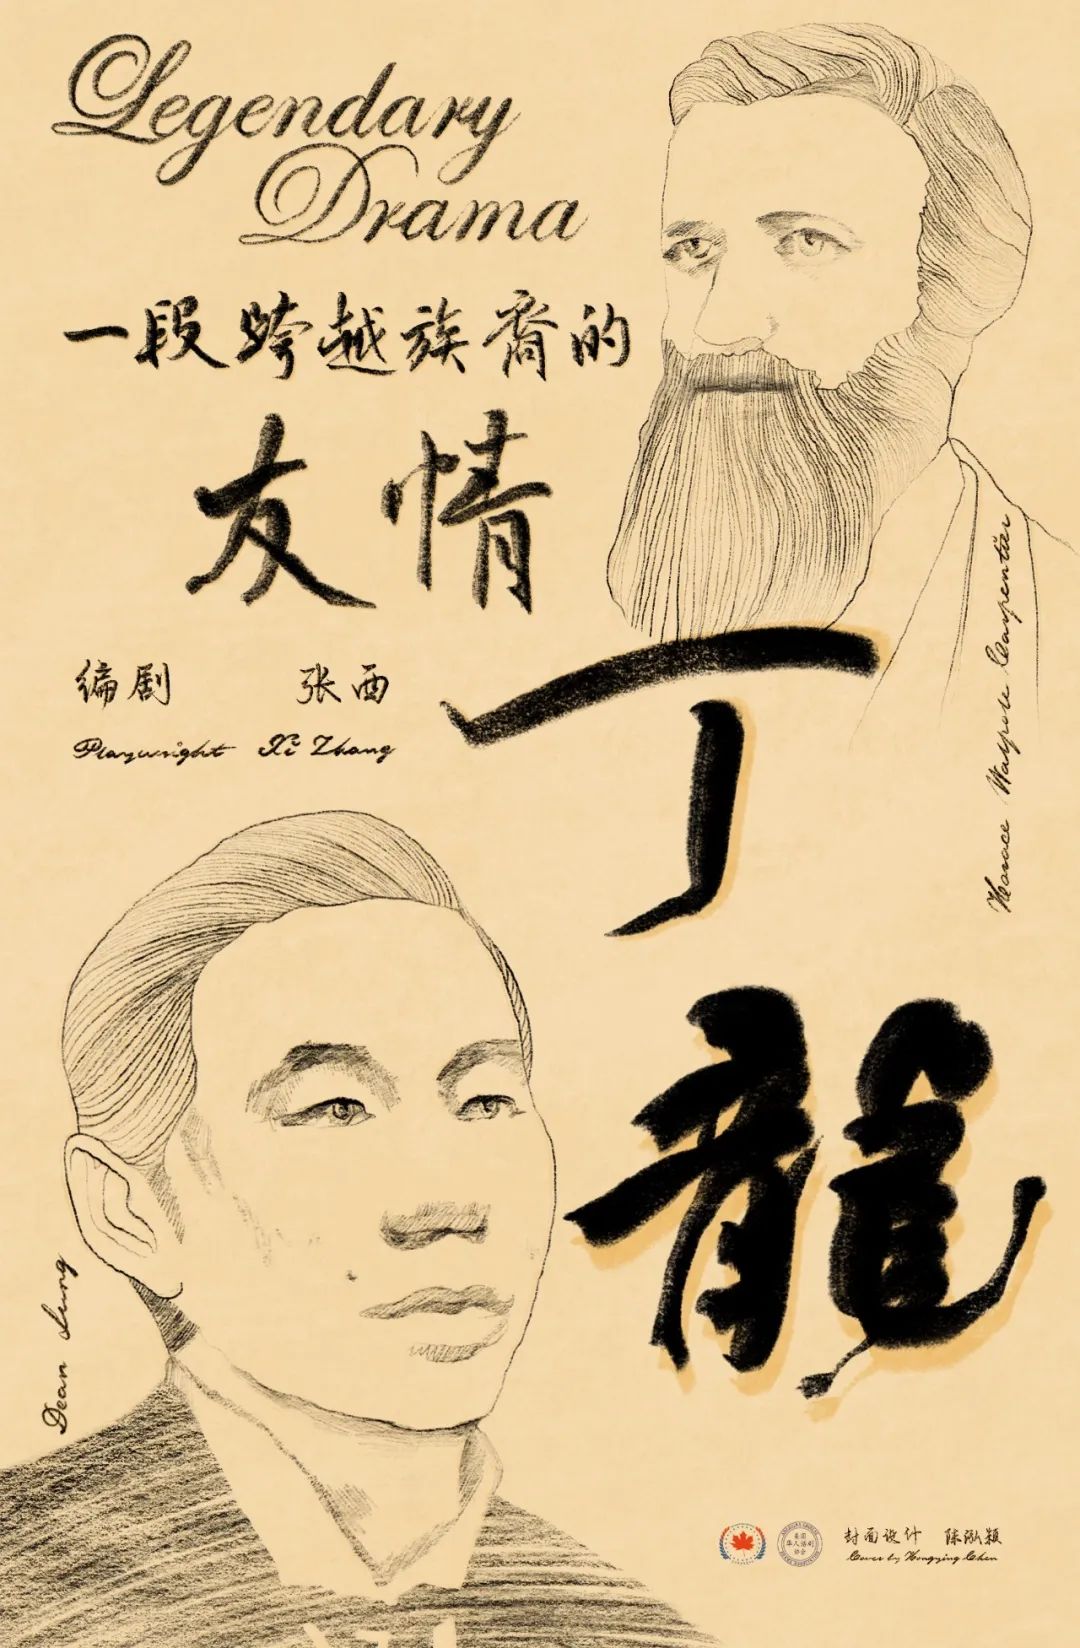 Legendary
Drama
一段跨越族裔的
友情
编剧 张西
Playwright Xi Zhang
丁
龍
Horace Walpole Carpentier
Dean Lung
美国
华人话剧
协会
封面设计 陈泓颖
Cover by Hongying Chen